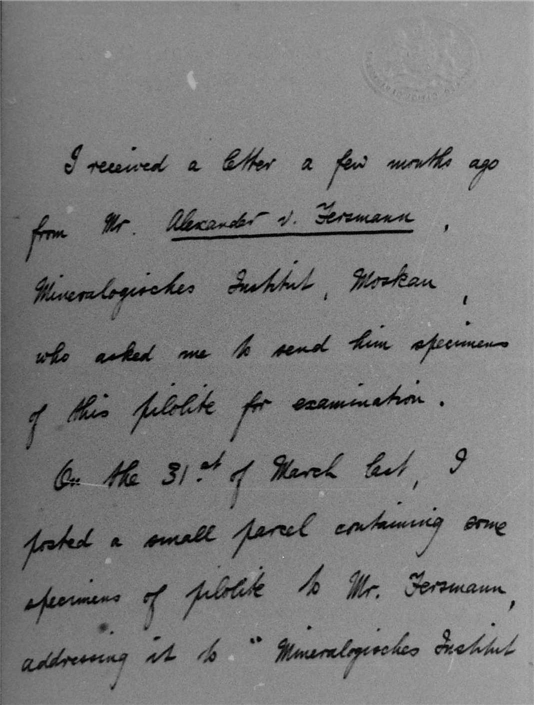 I received a letter a few months ago
from Mr. Alexander v. Fersmann,
Mineralogisches Institut, Moskau,
who asked me to send him specimens
of this pilolite for examination.
On the 31st of March last, I
posted a small parcel containing some
specimens of pilolite to Mr. Fersmann,
addressing it to " Mineralogisches Institut